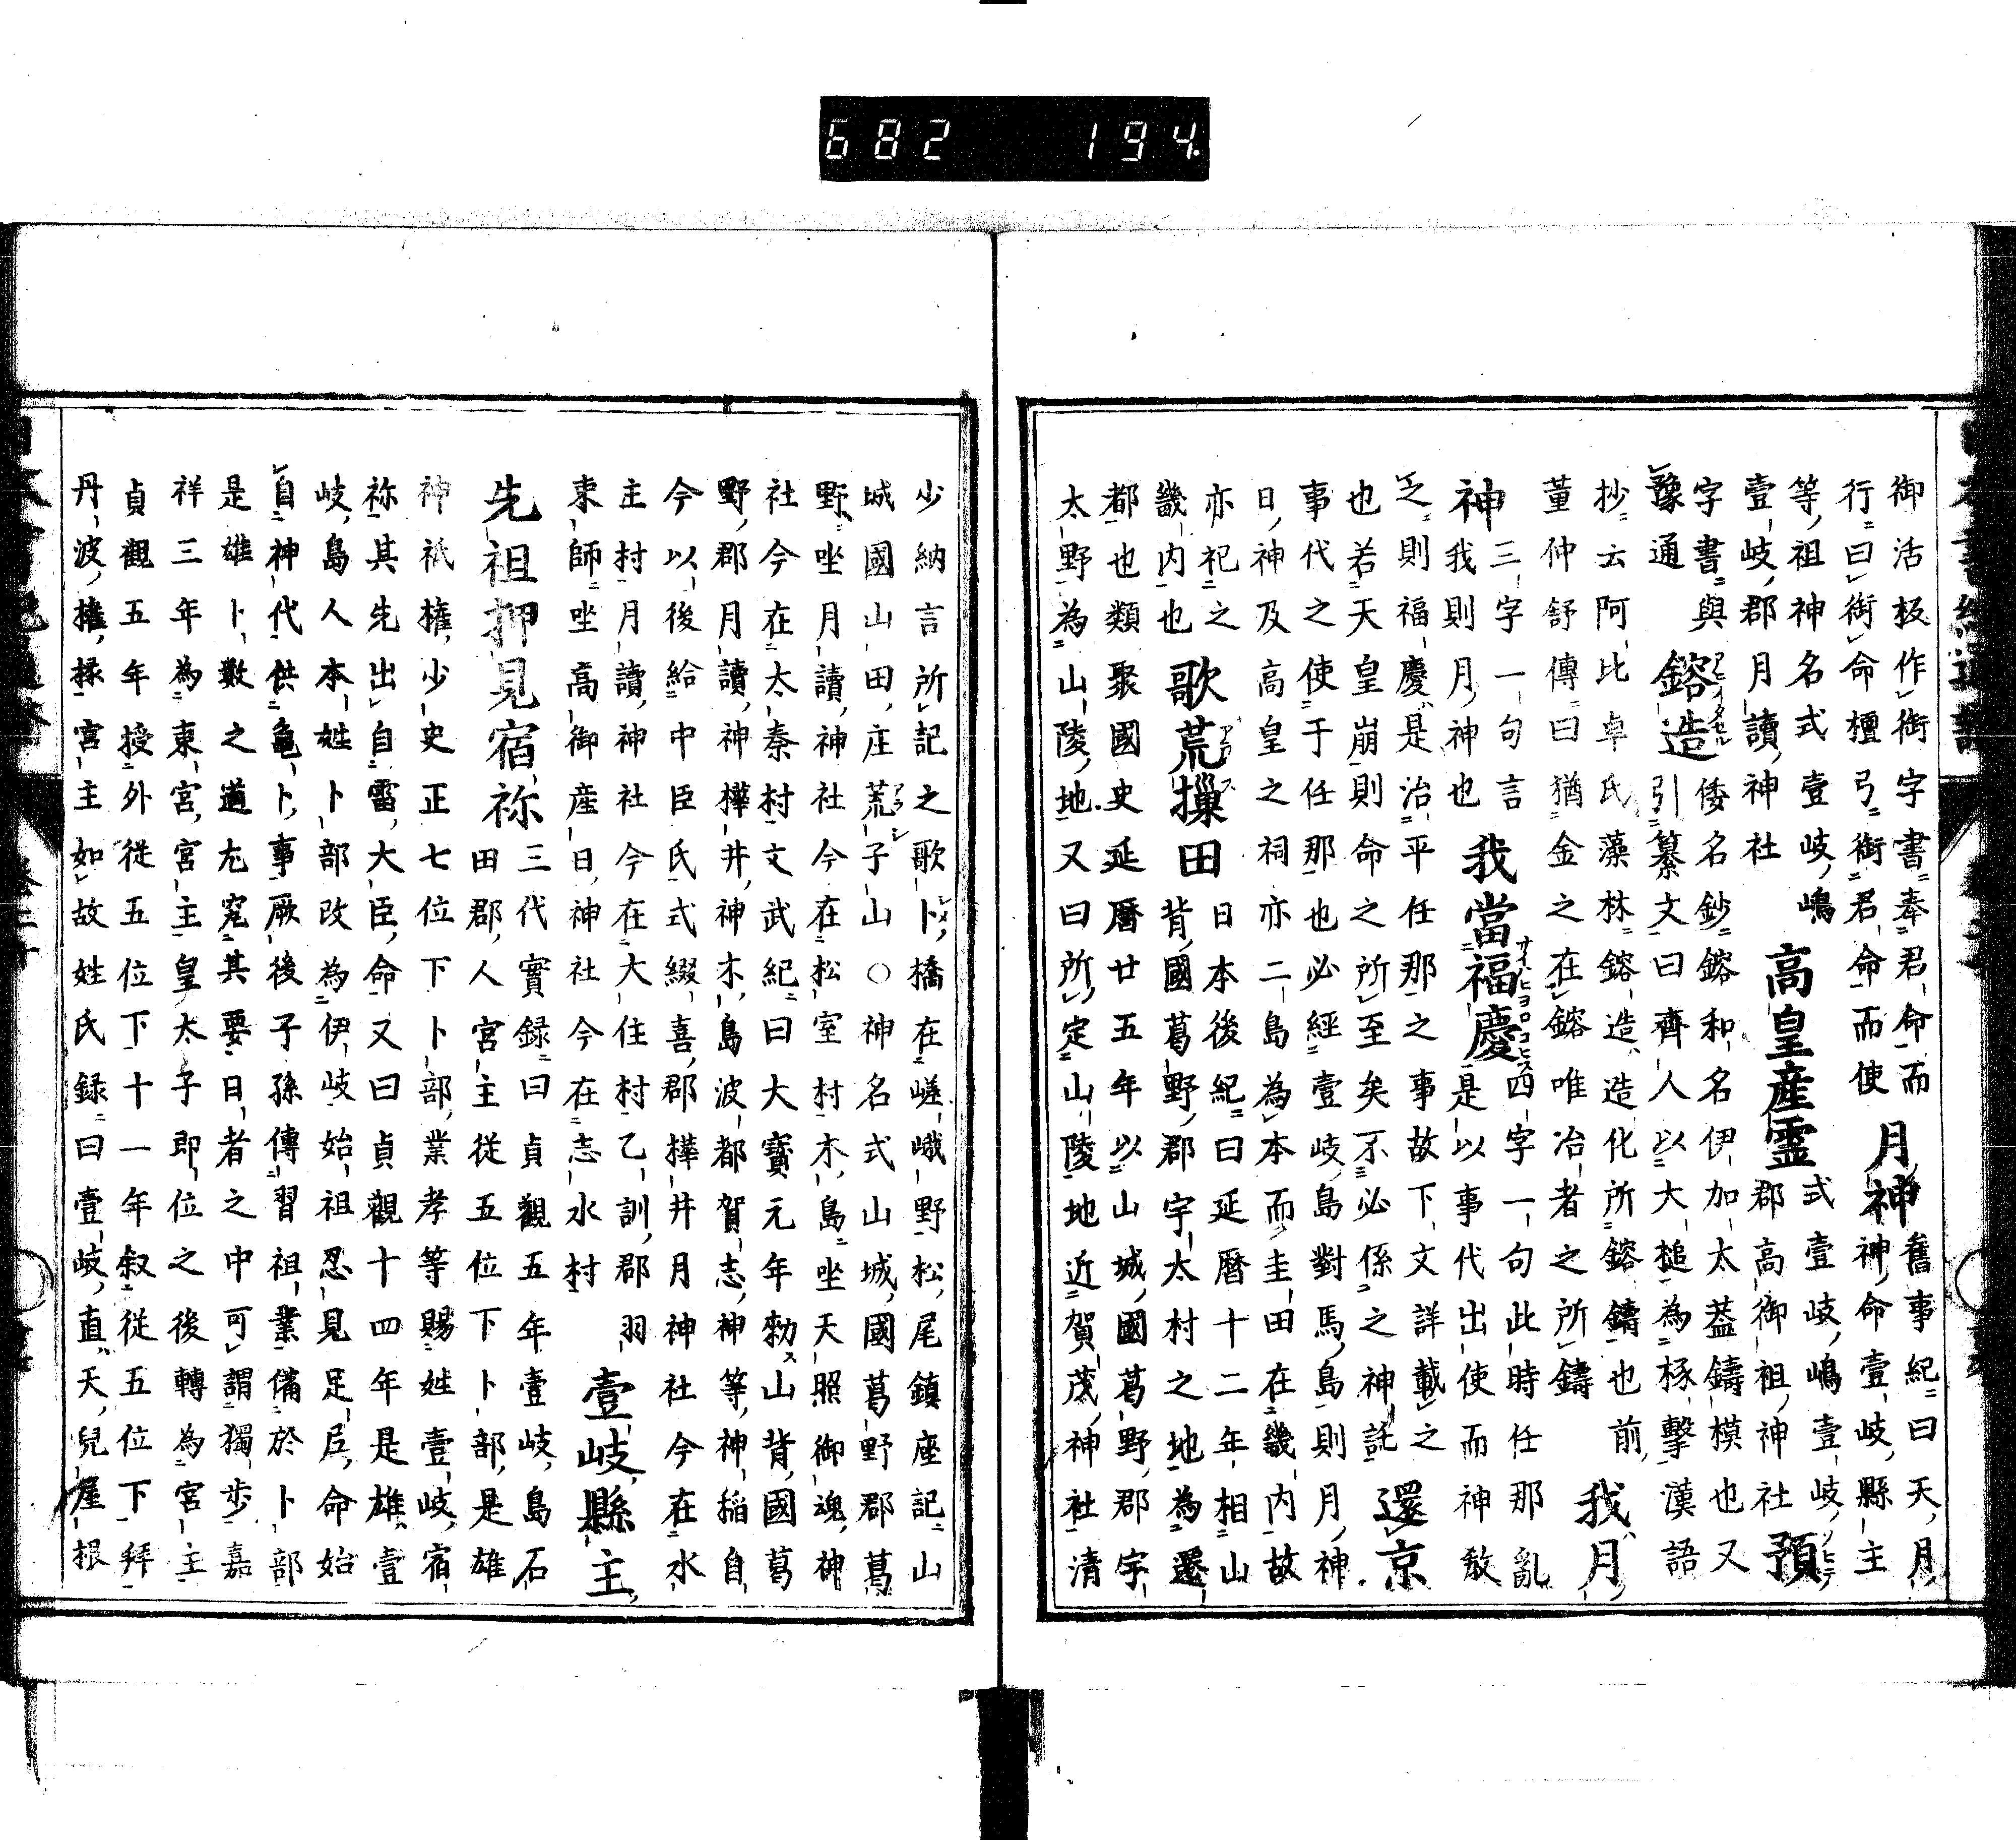 682 194
御活板作衘字書奉君命而
行曰衘命檀弓衘君命而使 月神 舊事紀曰天月
神命壹岐縣主
等祖神名式壹岐嶋
壹岐郡月讀神社 高皇産霊 式壹岐嶋壹岐
郡高御祖神社 預
字書與
豫通 鎔造 倭名鈔鎔和名伊加太蓋鑄模也又
引纂文曰齊人以大槌為椓擊漢語
抄云阿比卓氏藻林鎔造造化所鎔鑄也前
董仲舒傳曰猶金之在鎔唯冶者之所鑄 我月
神 三字一句言
我則月神也 我當福慶 四字一句此時任那亂
是以事代出使而神敎
之則福慶是治平任那之事故下文詳載之
也若天皇崩則命之所至矣不必係之神託 還京
事代之使于任那也必經壹岐島對馬島則月神
日神及高皇之祠亦二島為本而圭田在畿内故
亦祀之
畿内也 歌荒樔田 日本後紀曰延暦十二年相山
背國葛野郡宇太村之地為遷
都也類聚國史延暦廿五年以山城國葛野郡宇
太野為山陵地又曰所定山陵地近賀茂神社清
少納言所記之歌卜橋在嵯峨野松尾鎮座記山
城國山田庄荒子山○神名式山城國葛野郡葛
野坐月讀神社今在松室村木島坐天照御魂神
社今在太秦村文武紀曰大寳元年勅山背國葛
野郡月讀神樺井神木島波都賀志神等神稲自
今以後給中臣氏式綴喜郡樺井月神社今在水
主村月讀神社今在大住村乙訓郡羽
束師坐高御産日神社今在志水村 壹岐縣主
先祖押見宿祢 三代實録曰貞觀五年壹岐島石
田郡人宮主従五位下卜部是雄
神祇權少史正七位下卜部業孝等賜姓壹岐宿
祢其先出自雷大臣命又曰貞觀十四年是雄壹
岐島人本姓卜部改為伊岐始祖忍見足尼命始
自神代供龜卜事厥後子孫傳習祖業備於卜部
是雄卜數之道尤究其要日者之中可謂獨歩嘉
祥三年為東宮宮主皇太子即位之後轉為宮主
貞觀五年授外従五位下十一年叙従五位下拜
丹波權掾宮主如故姓氏録曰壹岐直天兒屋根